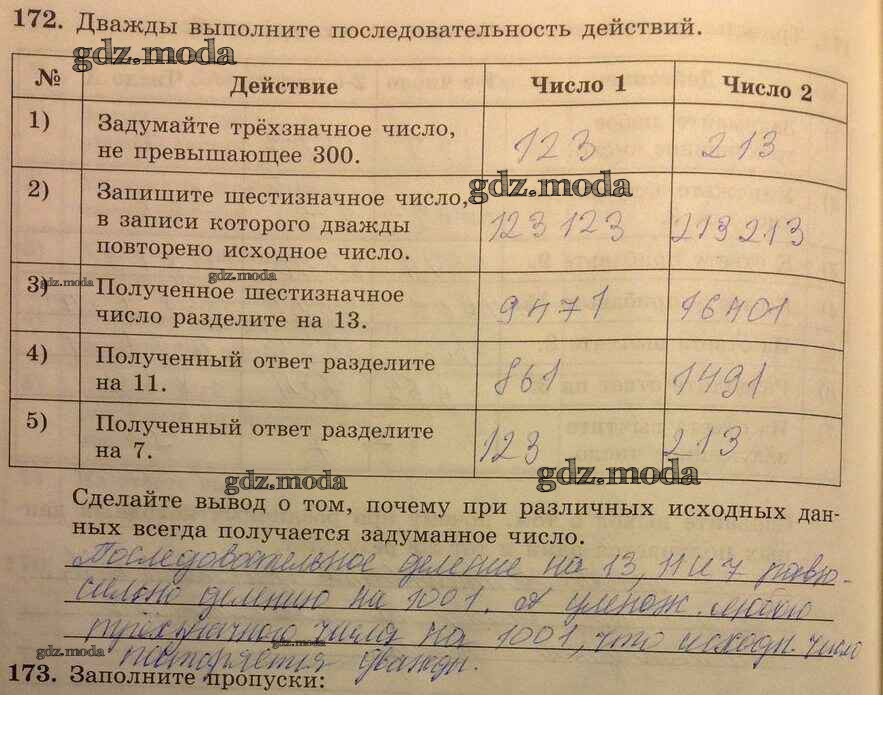 172. Дважды выполните последовательность действий.
gdz.moda
№ Действие Число 1 Число 2
1) Задумайте трёхзначное число,
не превышающее 300. 123 213
gdz.moda
2) Запишите шестизначное число,
в записи которого дважды
повторено исходное число. 123 123 213 213
gdz.moda gdz.moda
3) Полученное шестизначное
число разделите на 13. 9471 16401
4) Полученный ответ разделите
на 11. 861 1491
5) Полученный ответ разделите
на 7. 123 213
gdz.moda gdz.moda
Сделайте вывод о том, почему при различных исходных дан-
ных всегда получается задуманное число.
Последовательное деление на 13, 11 и 7 равно-
сильно делению на 1001. А умнож. любого
трёхзначного числа на 1001, что исходн. число
gdz.moda gdz.moda
повторяется дважды.
173. Заполните пропуски: